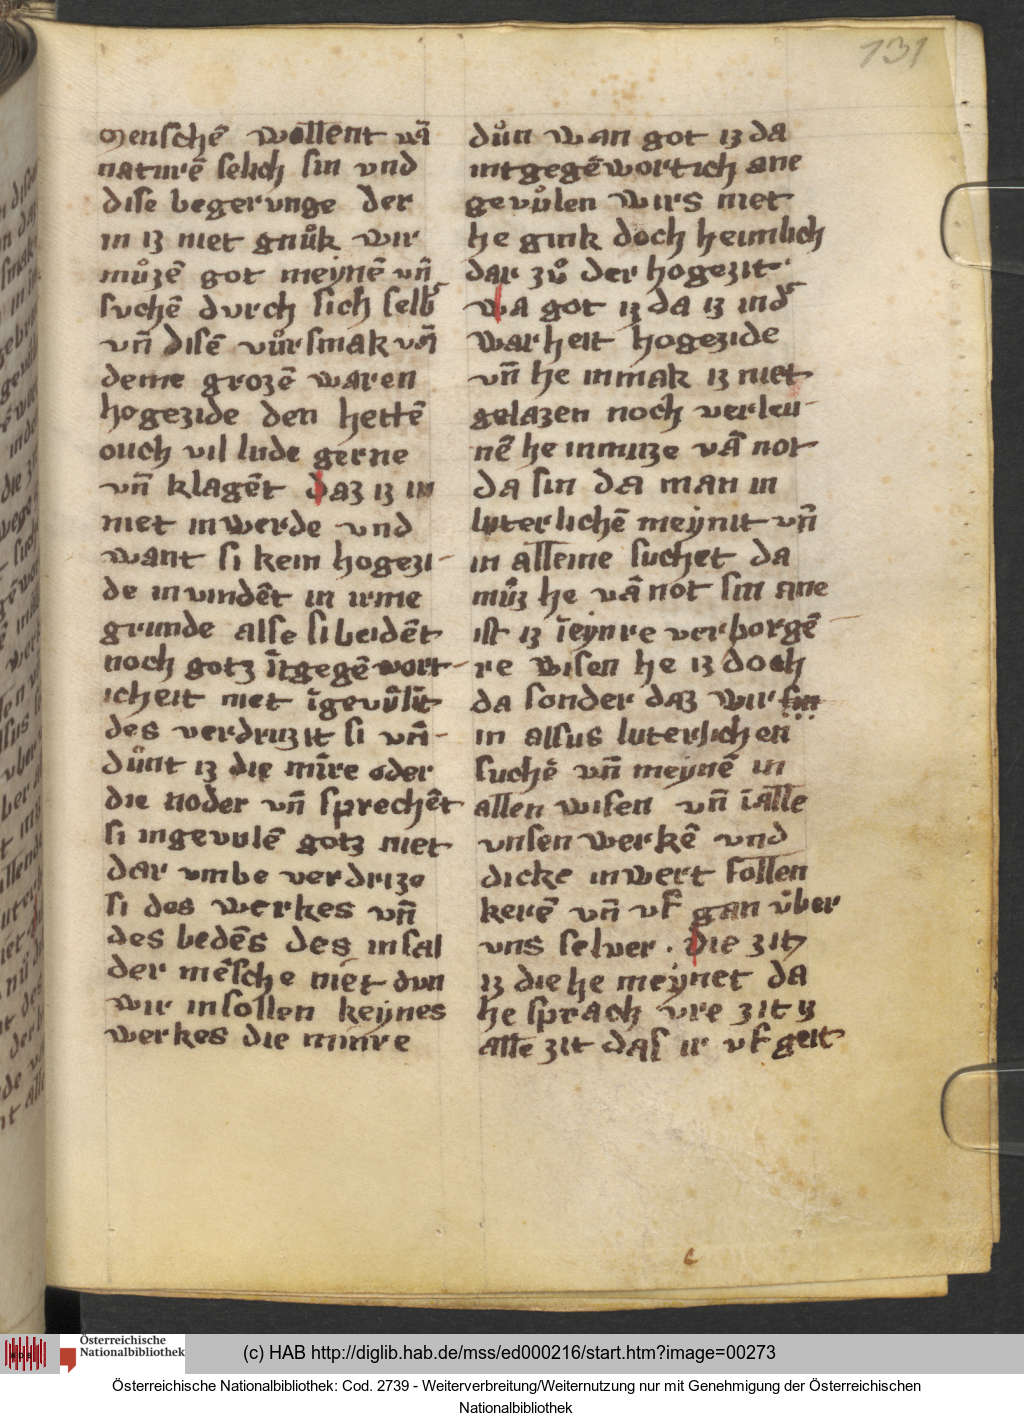 131
menschē wollent vā
naturē selich sin vnd
dise begerunge der
in iz niet gnůk wir
můzē got meynē vn̄
suchē durch sich selb
vn̄ disē vůrsmak vn̄
deme grozē waren
hogezide den hettē
ouch vil lude gerne
vn̄ klagēt daz iz in
niet inwerde vnd
want si kein hogezi-
de invindēt in irme
grunde alse si beidēt
noch gotz ītgegē wort-
icheit niet īgevūlīt
des verdruzit si vn̄-
důnt iz die mīre oder
die noder vn̄ sprechēt
si ingevulē gotz niet
dar vmbe verdrize
si des werkes vn̄
des bedēs des insal
der mēsche niet dun
wir insollen keynes
werkes die minre
důn wan got iz da
intgegēwortich ane
gevůlen wirs niet
he gink doch heimlich
dar zů der hogezit
Wa got iz da iz ind
warheit hogezide
vn̄ he inmak iz niet
gelazen noch verleu-
nē he inmuze vā not
da sin da man in
luterlichē meynit vn̄
in alleine suchet da
můz he vā not sin ane
ist iz īeynre verborgē
re wisen he iz doch
da sonder daz wir sin
in alsus luterlichen
suchē vn̄ meynē in
allen wisen vn̄ ī alle
vnsen werkē vnd
dicke inwert sollen
kerē vn̄ vf gan vůber
vns selver . Die zit
iz die he meynet da
he sprach vre zit is
alle zit das ir vf geit
c
Österreichische
Nationalbibliothek
(c) HAB http://diglib.hab.de/mss/ed000216/start.htm?image=00273
Österreichische Nationalbibliothek: Cod. 2739 - Weiterverbreitung/Weiternutzung nur mit Genehmigung der Österreichischen
Nationalbibliothek